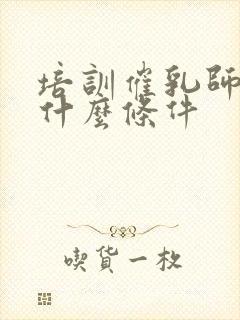 培訓催乳師
什麼條件
喫貨一枚